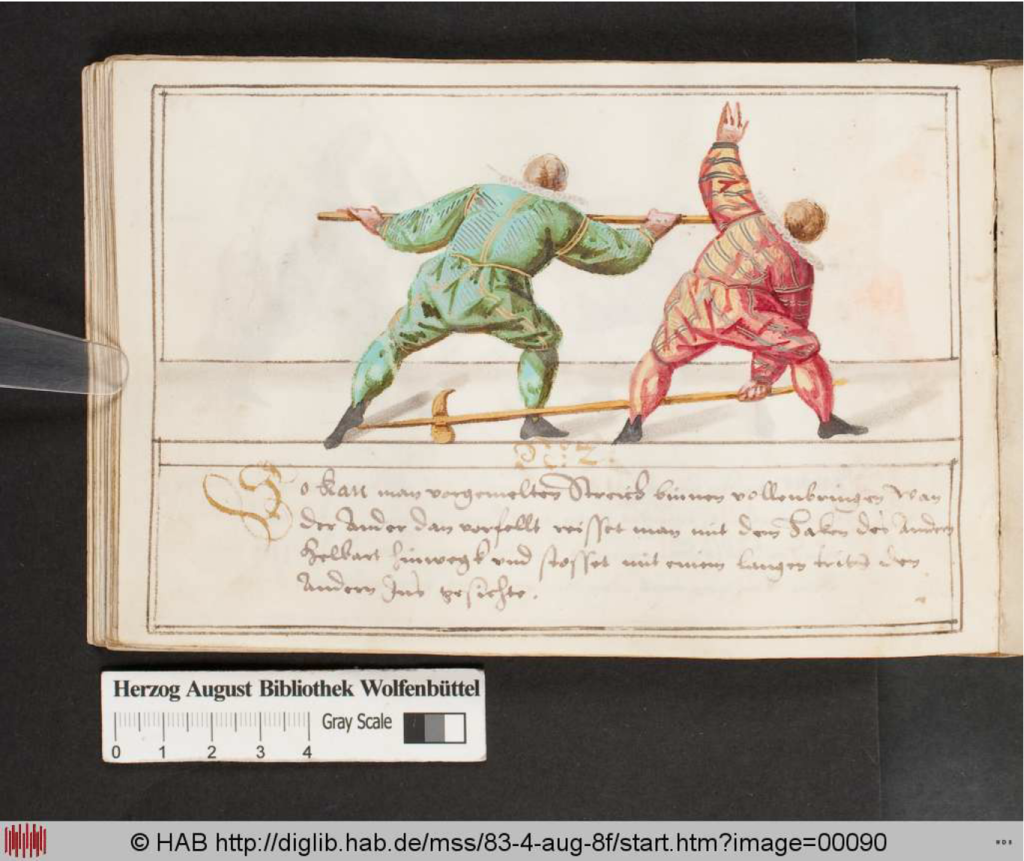 N: 2.
So kan man vorgemelten Streich binnen vollenbringen Wan
der Ander dan vorfellt reisset man mit dem Haken des Andern
Helbart hinwegk vnd stosset mit einem langen tritt den
Andern Ins gesichte.
Herzog August Bibliothek Wolfenbüttel
Gray Scale
0 1 2 3 4
© HAB http://diglib.hab.de/mss/83-4-aug-8f/start.htm?image=00090